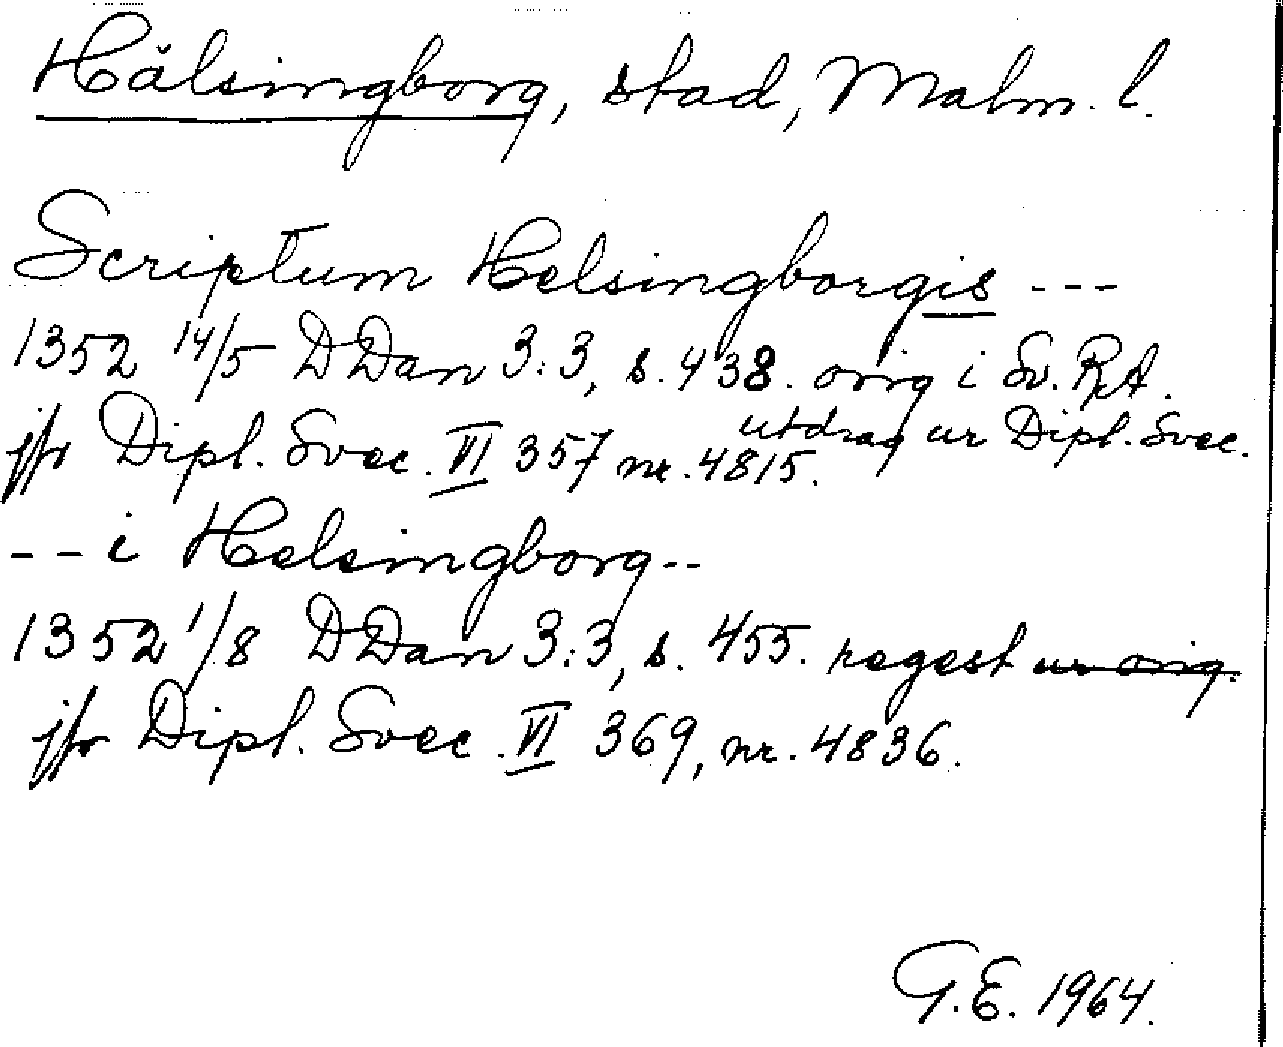 Hälsingborg, stad, Malm. l.
Scriptum Helsingborgis ---
1352 14/5 DDan 3:3, s. 438. orig i Sv. RA.
utdrag ur Dipl. Svec.
jfr Dipl. Svec. VI 357 nr. 4815.
-- i Helsingborg --
1352 1/8 DDan 3:3, s. 455. regest ur orig.
jfr Dipl. Svec. VI 369, nr. 4836.
G.E. 1964.